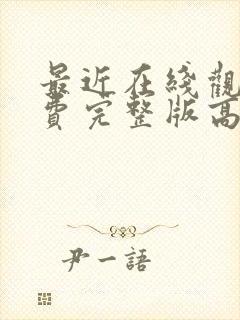 最近在线觀
費完整版高
尹一語